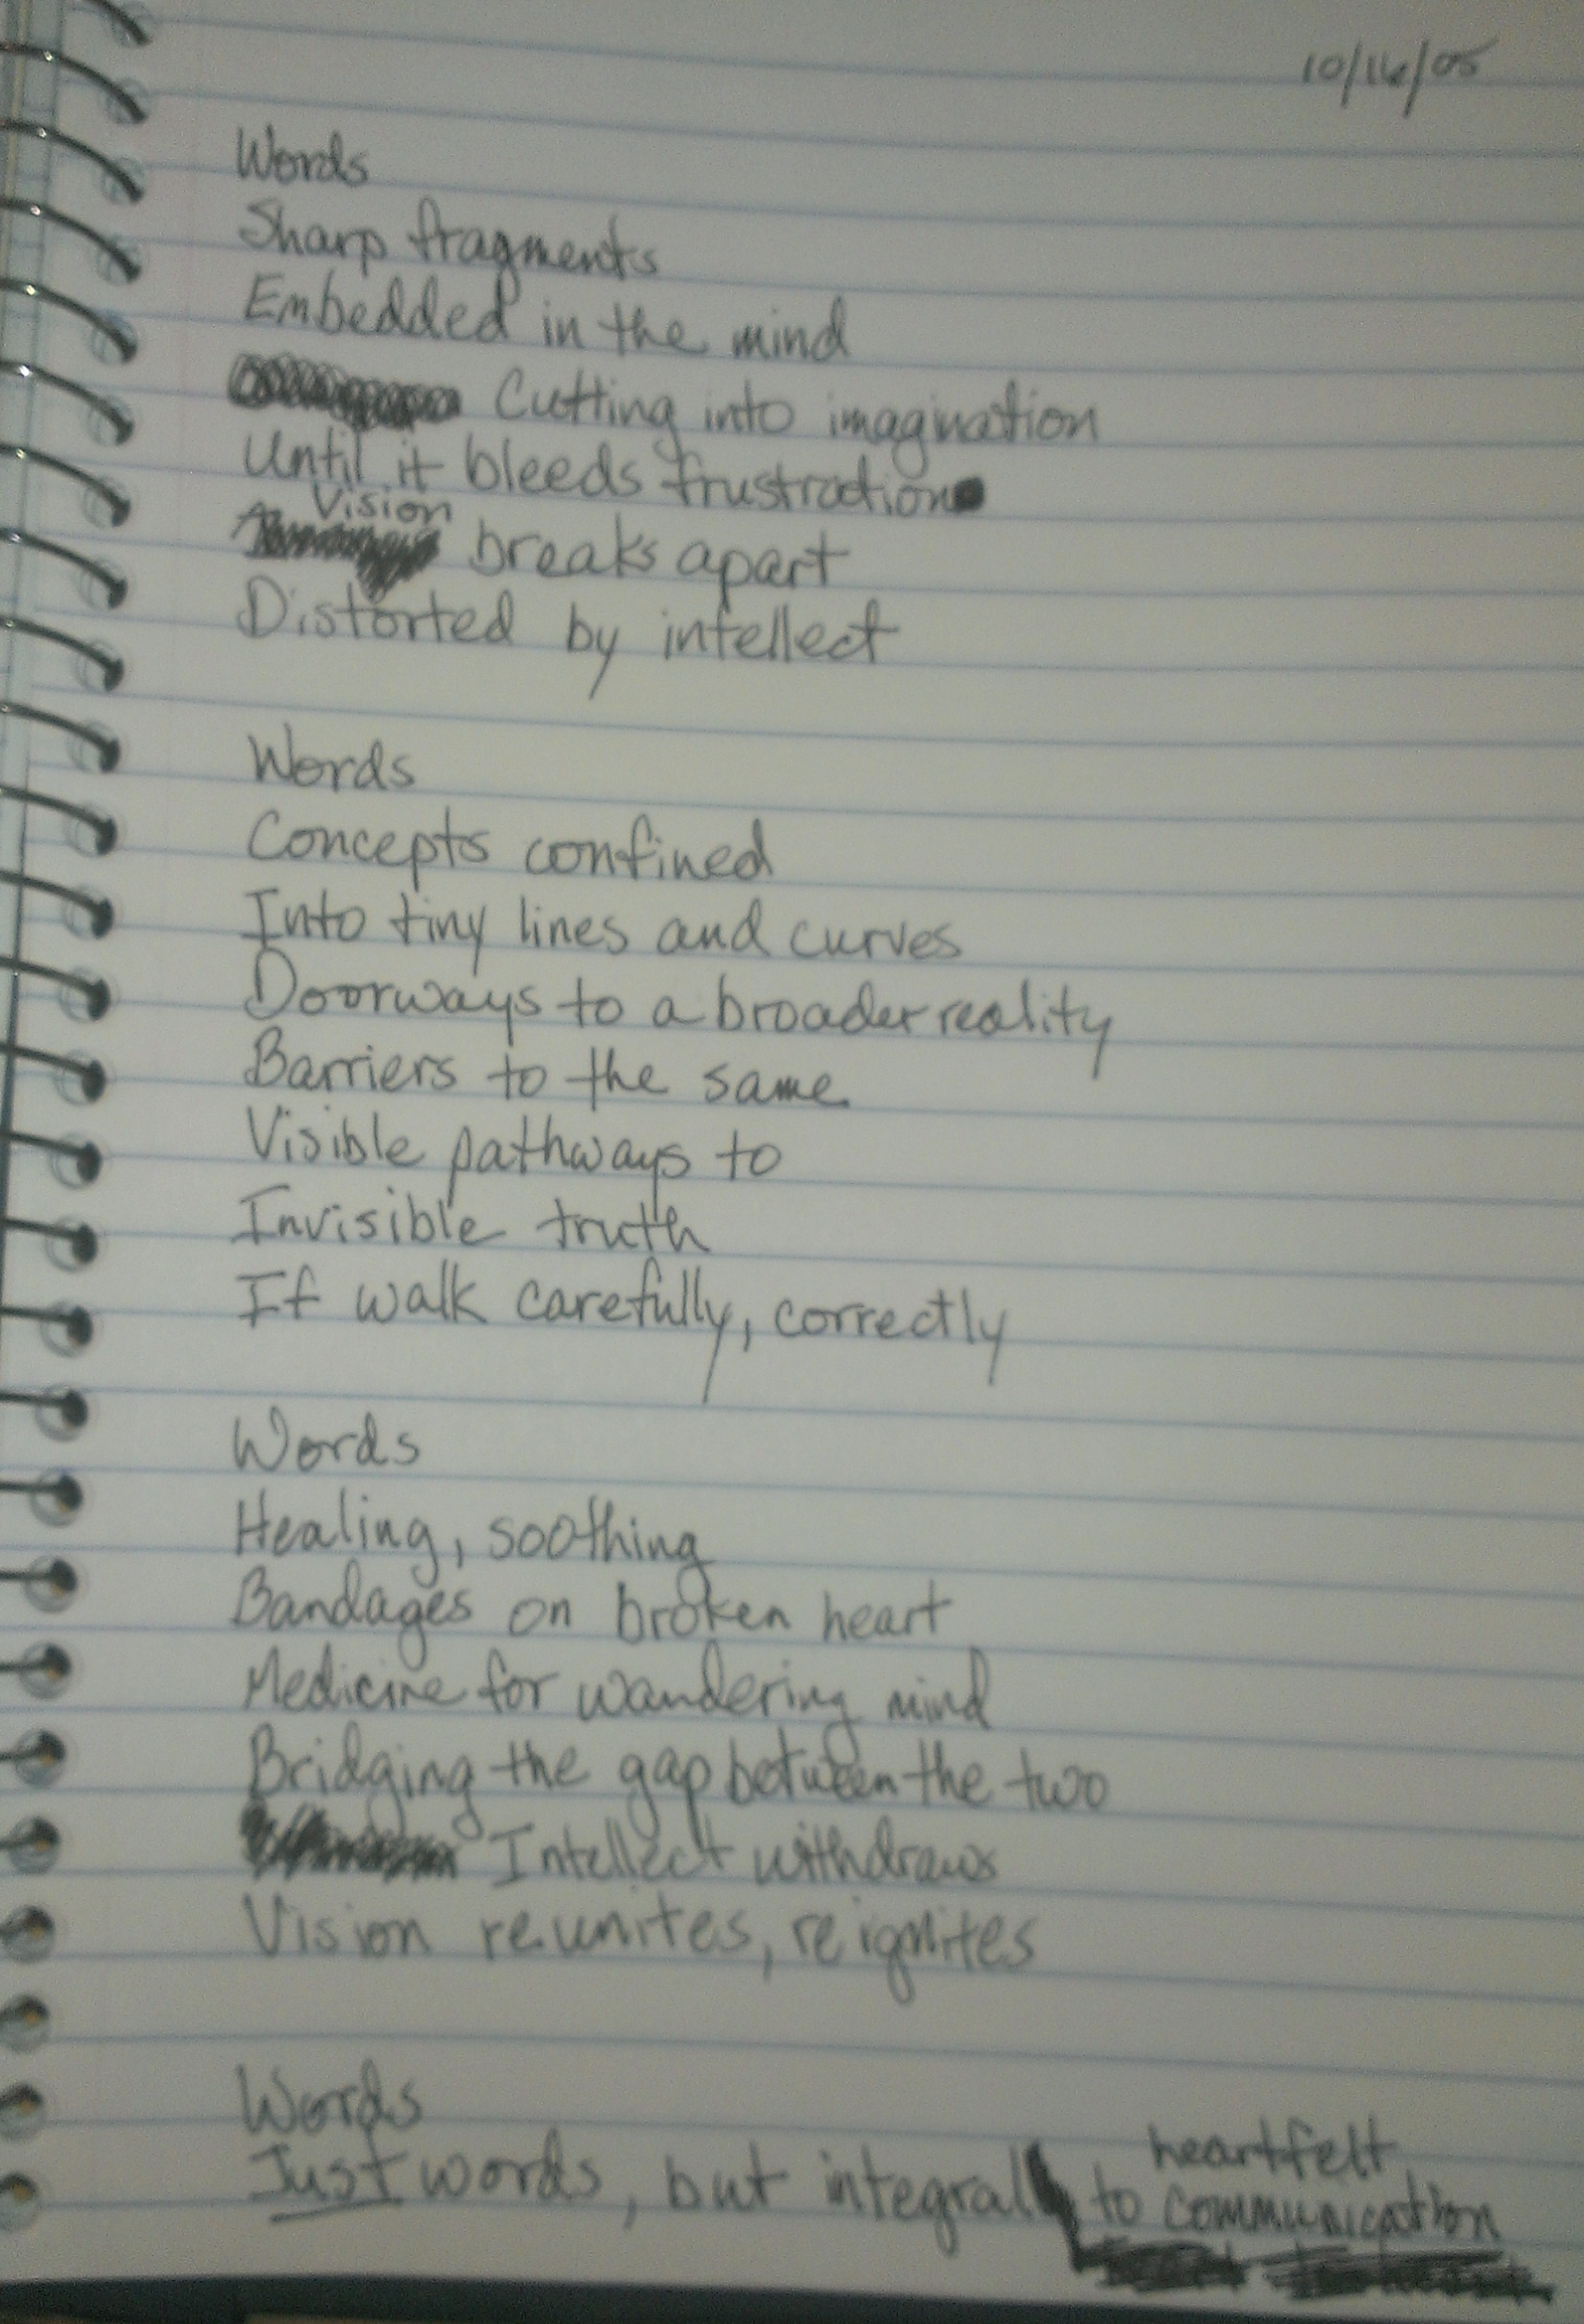 10/16/05
Words
Sharp fragments
Embedded in the mind
Cutting into imagination
Until it bleeds frustration
Vision
breaks apart
Distorted by intellect
Words
Concepts confined
Into tiny lines and curves
Doorways to a broader reality
Barriers to the same
Visible pathways to
Invisible truth
If walk carefully, correctly
Words
Healing, soothing
Bandages on broken heart
Medicine for wandering mind
Bridging the gap between the two
Intellect withdraws
Vision reunites, reignites
Words
heartfelt
Just words, but integral to communication